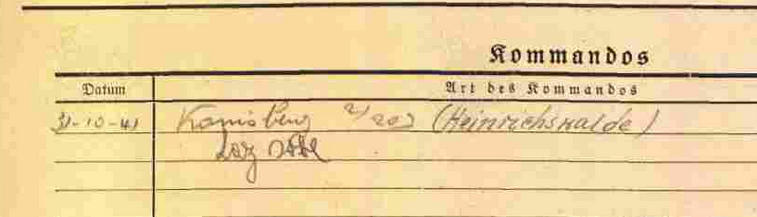 Kommandos
Datum Art des Kommandos
31-10-41 Konisberg 2/203 (Heinrichswalde)
Laz